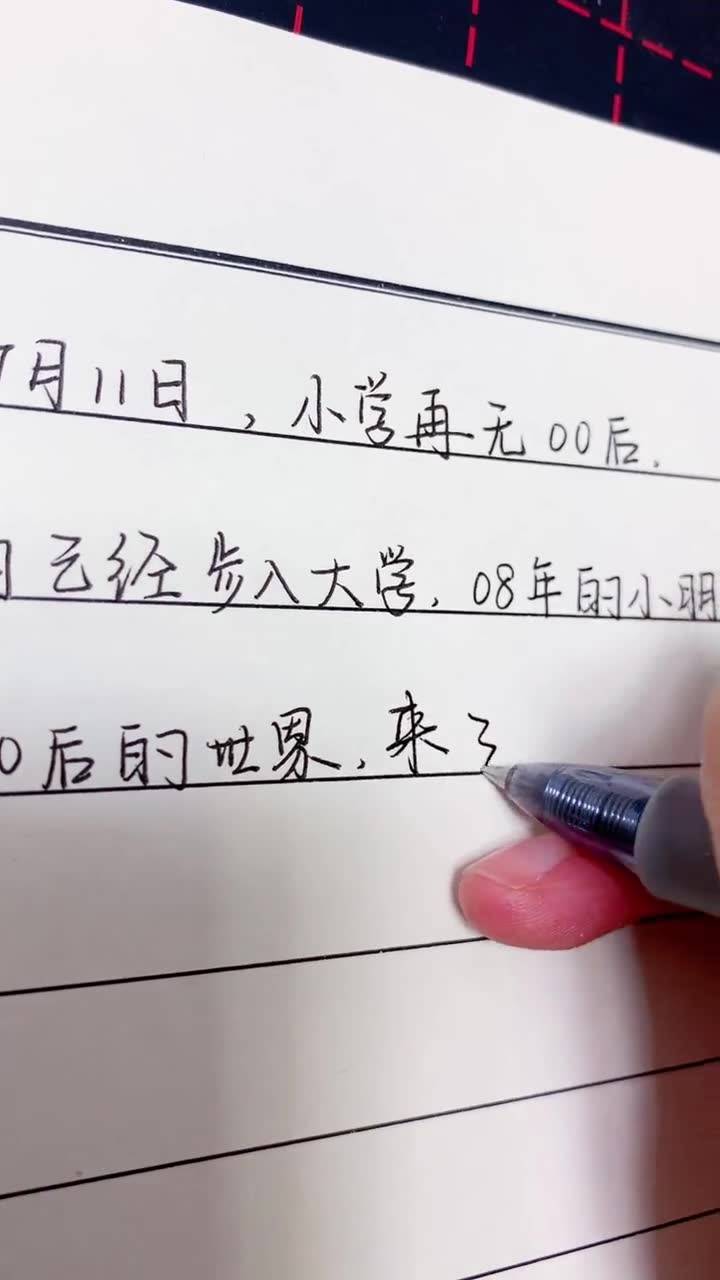 月11日，小学再无00后.
已经步入大学.08年的小明
0后的世界.来了